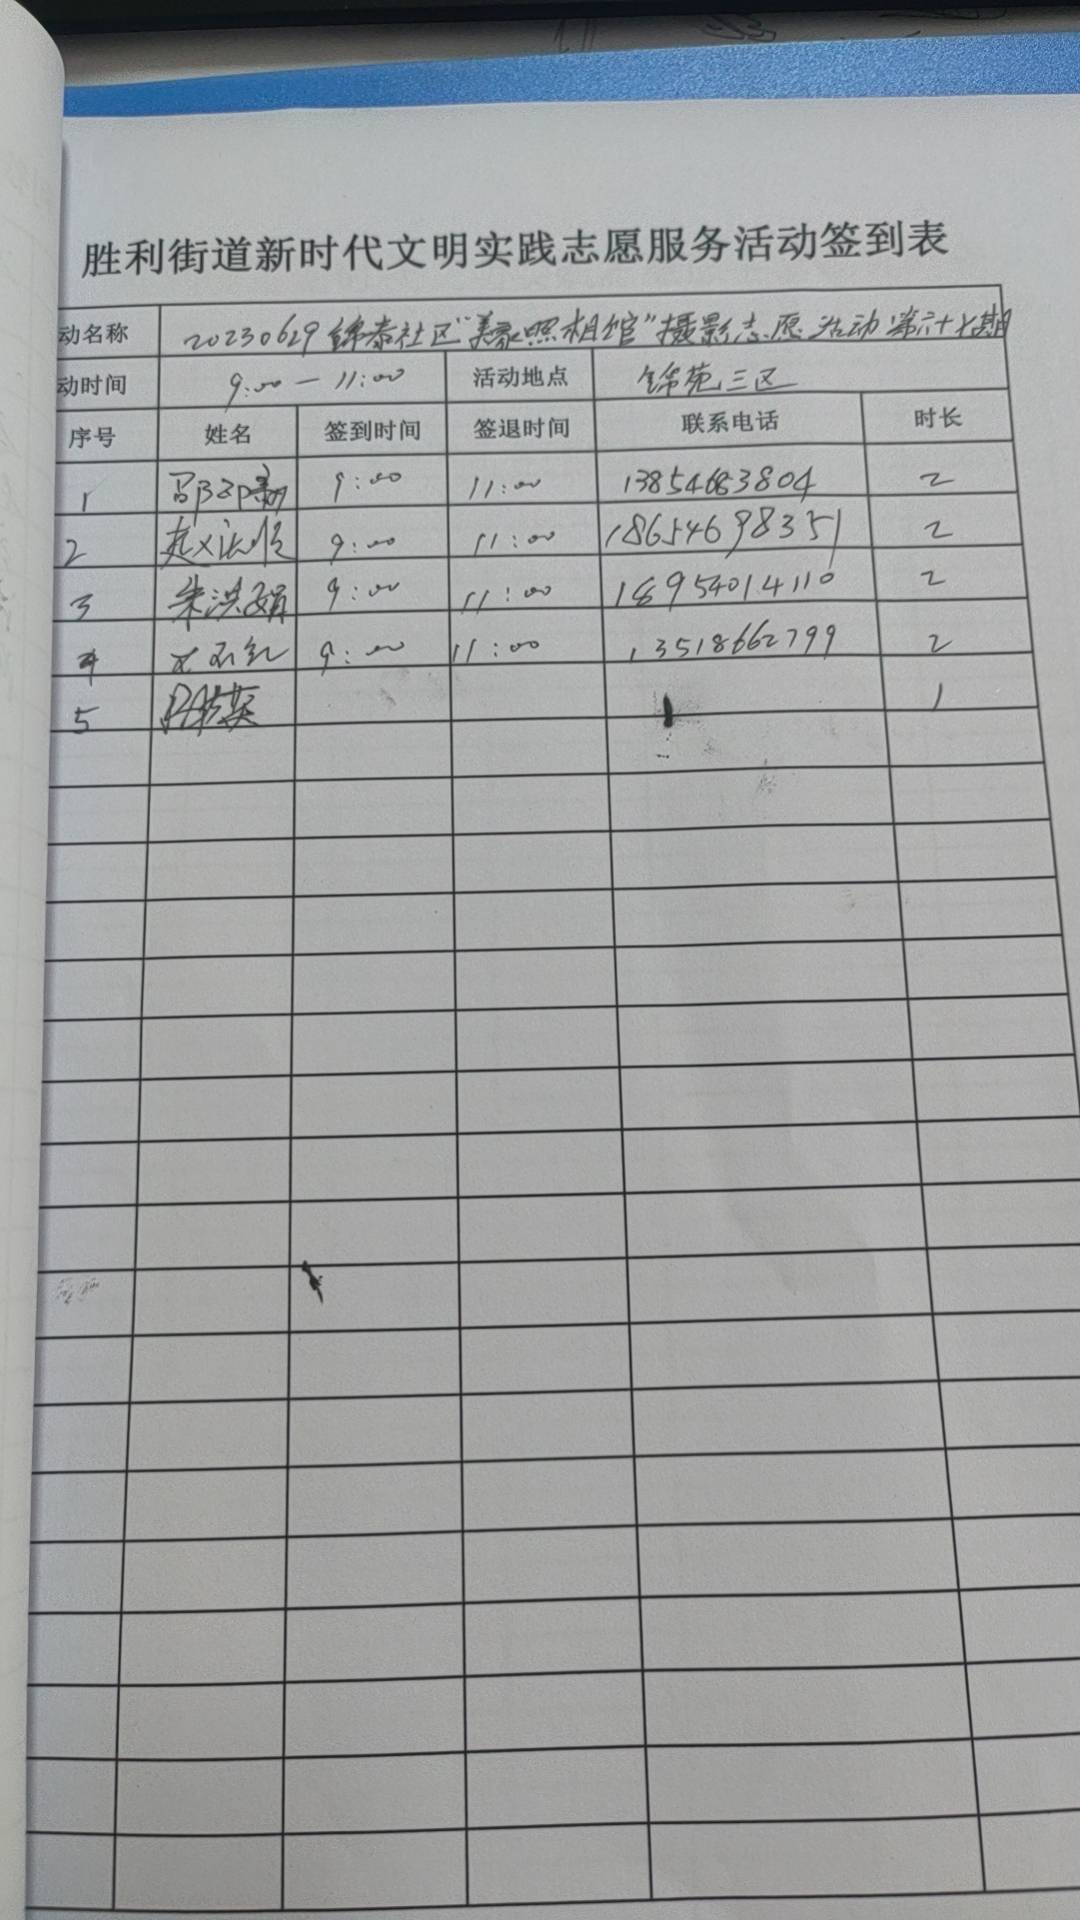 胜利街道新时代文明实践志愿服务活动签到表
动名称 20230629锦泰社区"美家照相馆"摄影志愿活动第六十七期
动时间 9:00—11:00 活动地点 锦苑三区
序号 姓名 签到时间 签退时间 联系电话 时长
1 9:00 11:00 13854683804 2
2 9:00 11:00 18654698351 2
3 朱洪娟 9:00 11:00 18954014110 2
4 9:00 11:00 13518662799 2
5 1